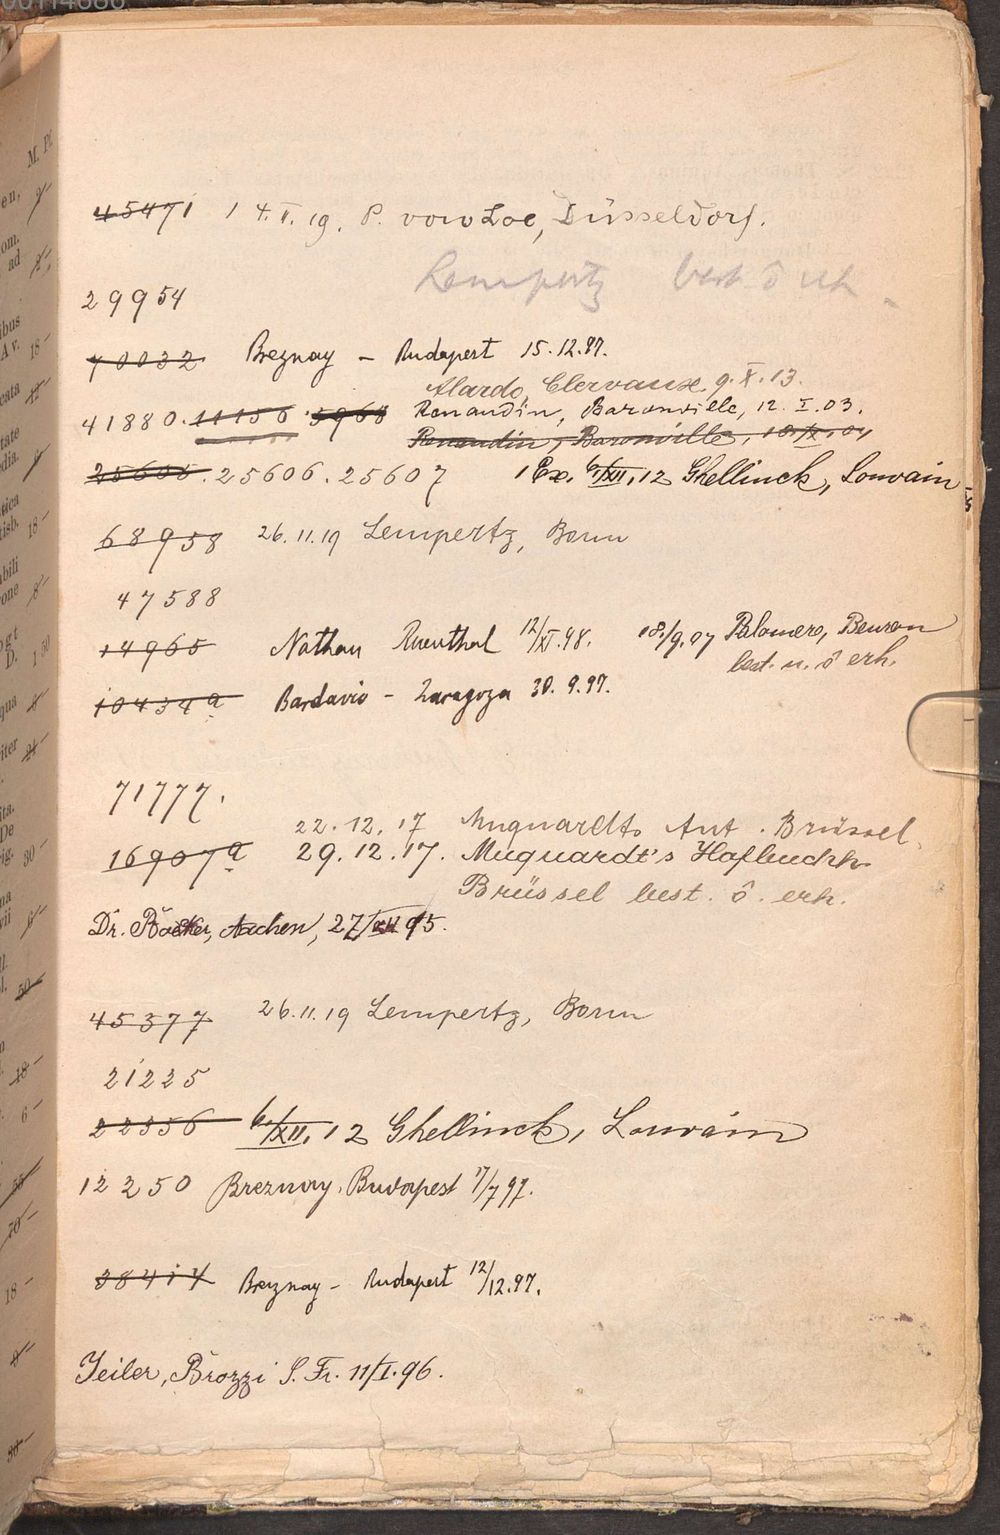 00114686
45471 1 4.V.19. P. von Loe, Düsseldorf.
Lempertz best ô erh.
29954
40032 Breznay - Budapest 15.12.87.
Alardo, Clervaux, 9.X.13.
41880. 11156 5968 Renaudin, Baronville, 12.I.03.
Renaudin, Baronville,
25605. 25606. 25607 1 Ex. 6/XII.12 Ghellinck, Louvain
68958 26.11.19 Lempertz, Bonn
47588
14965 Nathan Rosenthal 12/XI.98. 18./9.07 Palomero, Beuron
best. u. ô erh.
10434a Bardavio - Zaragoza 30.9.97.
71777.
22.12.17 Muquardts Ant. Brüssel.
16907a 29.12.17. Muquardt's Hofbuchh.
Brüssel best. ô. erh.
Dr. Aachen, 27/ 95.
45377 26.11.19 Lempertz, Bonn
21225
22356 6/XII.12 Ghellinck, Louvain
12250 Breznay, Budapest 17/7 97.
38414 Breznay - Budapest 12/12.97.
Jeiler, Brozzi S. Fr. 11/I.96.
M. Pf.